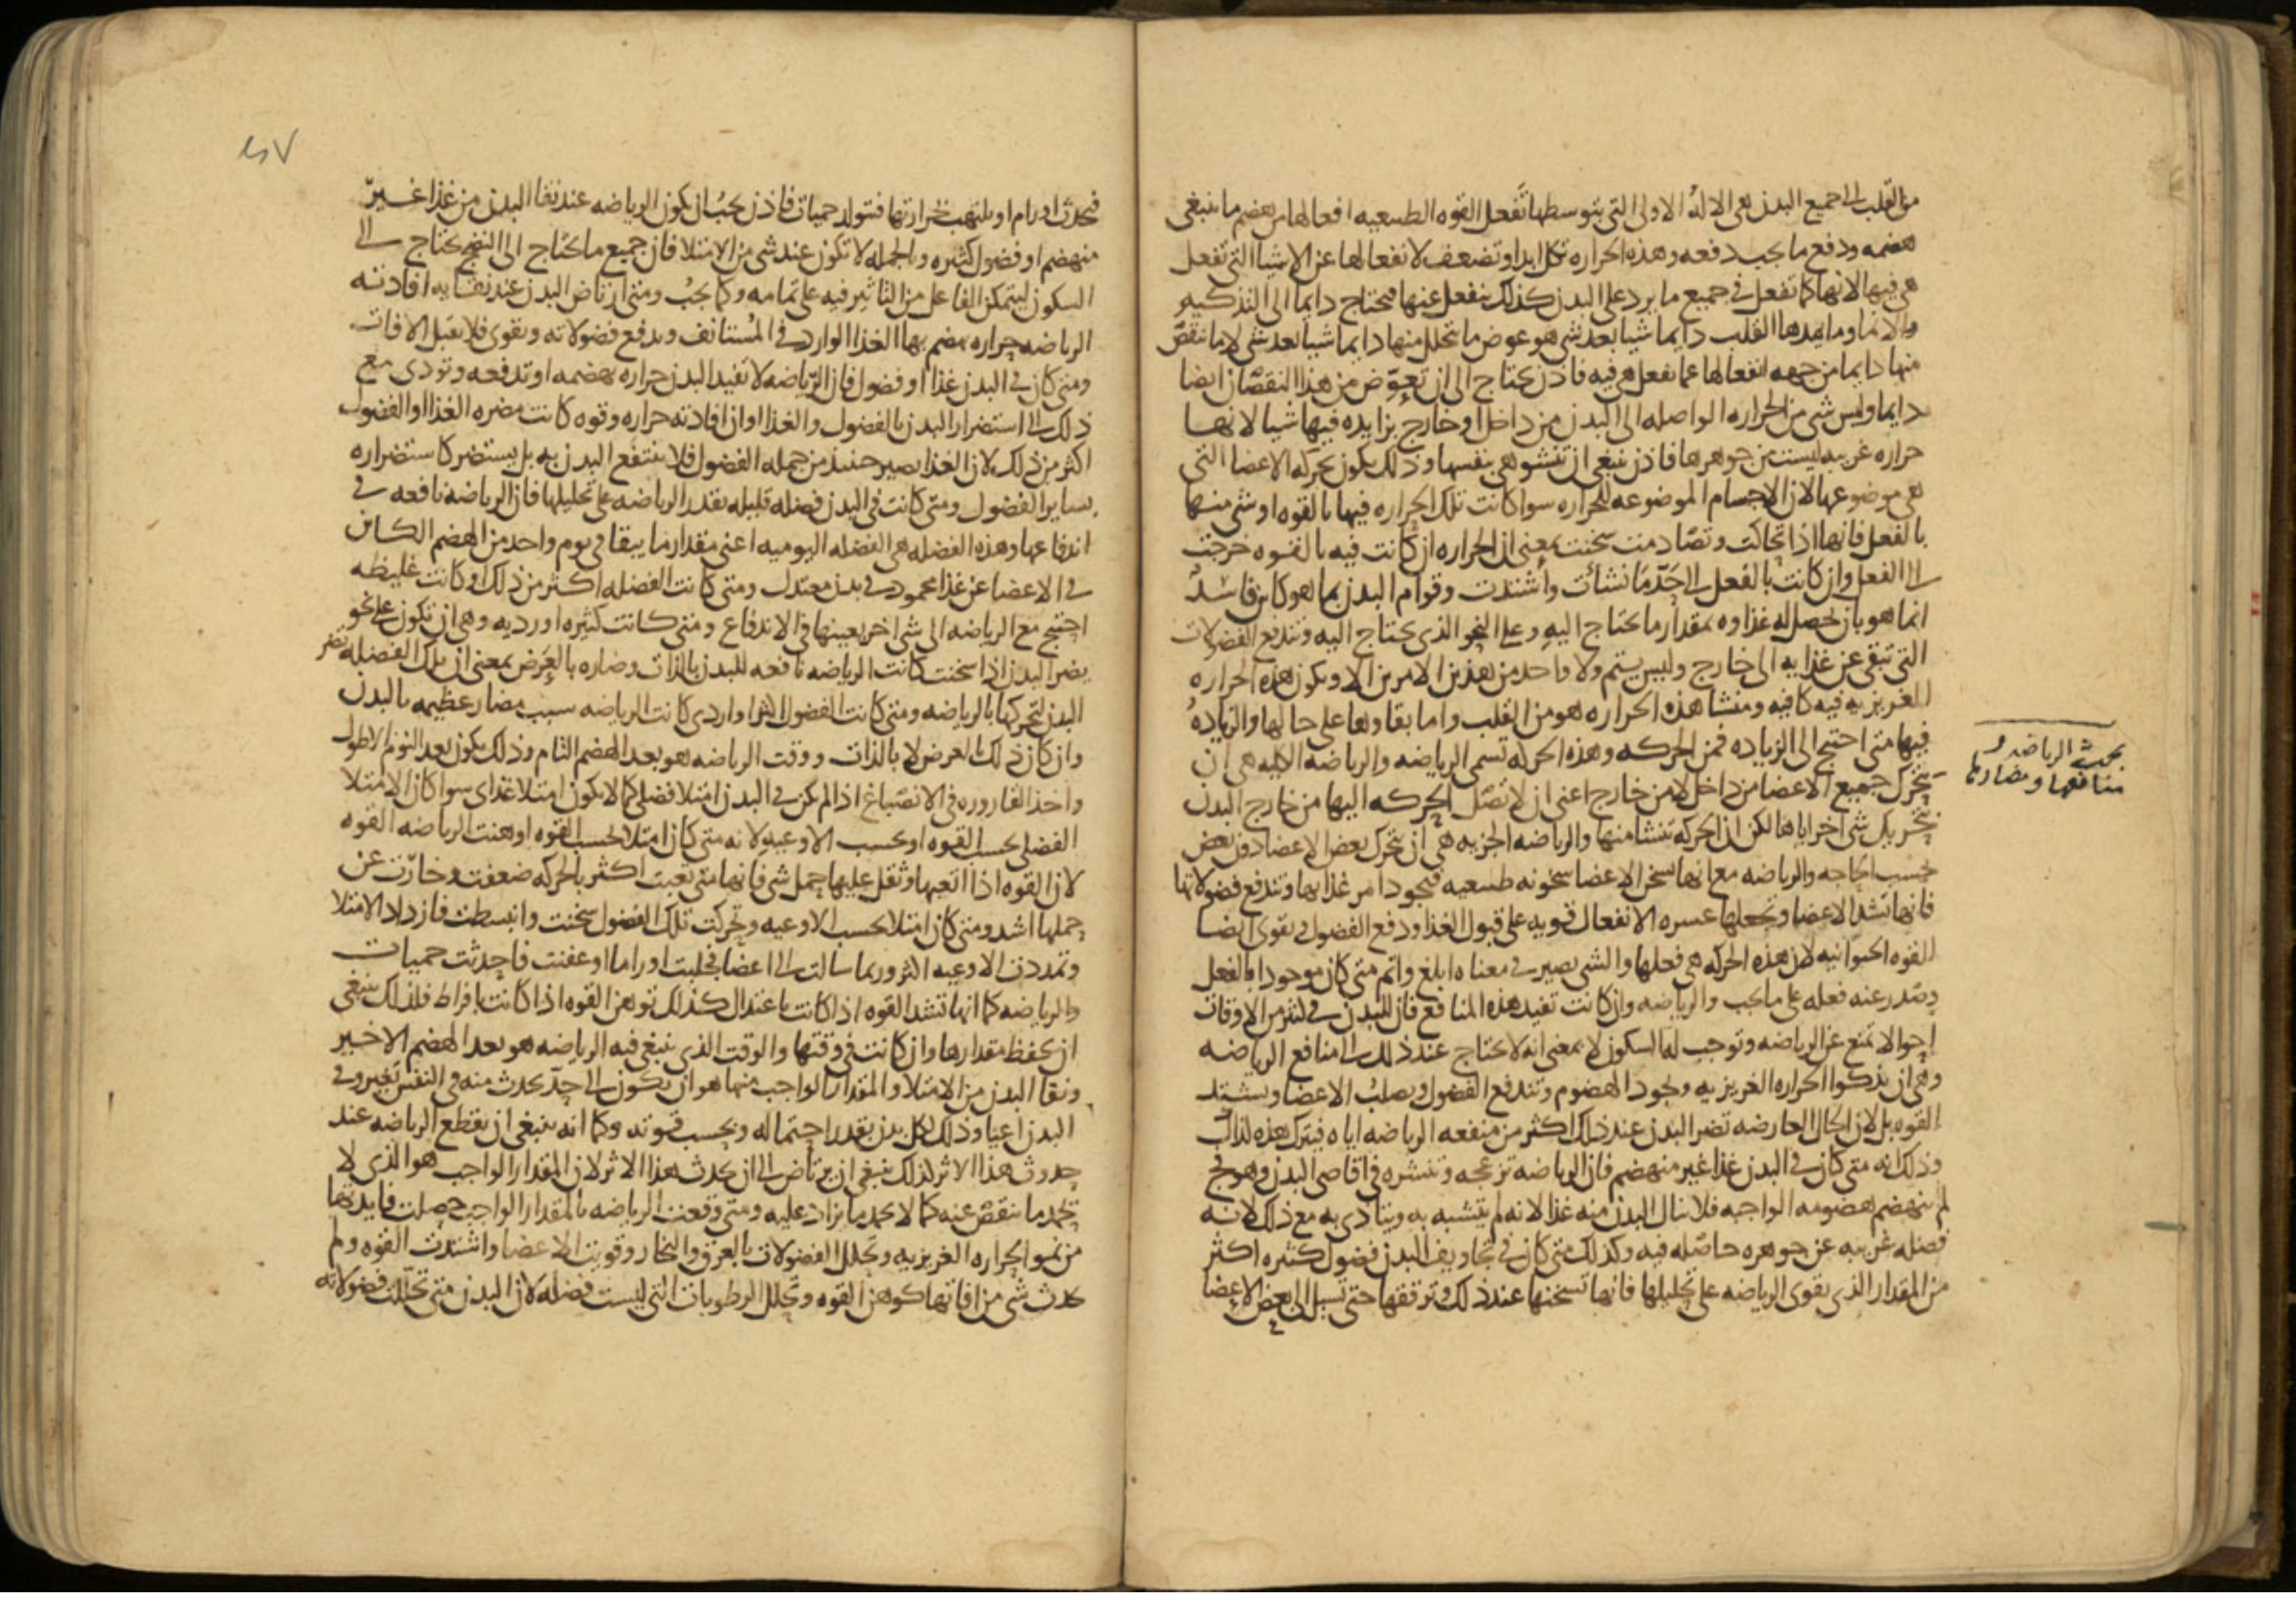 من القلب الى جميع البدن هى الاله الاولى التى بتوسطها تفعل القوه الطبيعيه افعالها من هضم ما ينبغى
هضمه ودفع ما يجب دفعه وهذه الحراره تكل ابدا وتضعف لانفعالها عن الاشيا التى تفعل
هى فيها لانها كما تفعل فى جميع ما يرد على البدن كذلك ينفعل عنها فيحتاج دايما الى التذكيه
والانما وما يمدها القلب دايما شيا بعد شى هو عوض ما يتحلل منها دايما شيا بعد شى لا ما نقص
منها دايما من جهه انفعالها عما تفعل هى فيه فاذن يحتاج الى ان تعوض من هذا النقصان ايضا
دايما وليس شى من الحراره الواصله الى البدن من داخل او خارج بزايده فيها شيا لانها
حراره غريبه ليست من جوهرها فاذن ينبغى ان تنشو هى بنفسها وذلك يكون بحركه الاعضا التى
هى موضوعها لان الاجسام الموضوعه للحراره سوا كانت تلك الحراره فيها بالقوه او شى منها
بالفعل فانها اذا تحاكت وتصادمت سخنت بمعنى ان الحراره ان كانت فيه بالقوه خرجت
الى الفعل وان كانت بالفعل الى حد ما نشات واشتدت وقوام البدن بما هو كاين فاسد
انما هو بان يحصل له غذاوه بمقدار ما يحتاج اليه وعلى النحو الذى يحتاج اليه وتندفع الفضولات
التى تبقى عن غذايه الى خارج وليس يتم ولا واحد من هذين الامرين الا وتكون هذه الحراره
الغريزيه فيه كافيه ومنشا هذه الحراره هو من القلب واما بقاوها على حالها والزياده
فيها متى احتيج الى الزياده فمن الحركه وهذه الحركه تسمى الرياضه والرياضه الكليه هى ان
يتحرك جميع الاعضا من داخل لا من خارج اعنى ان لا تصل الحركه اليها من خارج البدن
بتحريك شى اخر اياها لكن ان الحركه تنشا منها والرياضه الجزيه هى ان يتحرك بعض الاعضا دون بعض
بحسب الحاجه والرياضه مع انها تسخن الاعضا سخونه طبيعيه فيجود امر غذايها وتندفع فضولاتها
فانها تشد الاعضا وتجعلها عسره الانفعال قويه على قبول الغذا ودفع الفضول وتقوى ايضا
القوه الحيوانيه لان هذه الحركه هى فعلها والشى يصير فى معناه ابلغ واتم متى كان موجودا بالفعل
وصدر عنه فعله على ما يجب والرياضه وان كانت تفيد هذه المنافع فان للبدن فى كثير من الاوقات
احوالا تمنع عن الرياضه وتوجب له السكون لا بمعنى انه لا يحتاج عند ذلك الى منافع الرياضه
وهى ان يذكوا الحراره الغريزيه وتجود الهضوم وتندفع الفضول ويصلب الاعضا ويشتد
القوه بل لان الحال العارضه تضر البدن عند ذلك اكثر من منفعه الرياضه اياه فيترك هذه لذلك
وذلك انه متى كان فى البدن غذا غير منهضم فان الرياضه تزعجه وتنشره فى اقاصى البدن وهو فج
لم ينهضم هضومه الواجبه فلا ينال البدن منه غذا لانه لم يتشبه به ويتاذى به مع ذلك لانه
فضله غريبه عن جوهره حاصله فيه وكذلك متى كان فى تجاويف البدن فضول كثيره اكثر
من المقدار الذى تقوى الرياضه على تحليلها فانها تسخنها عند ذلك وترققها حتى تسيل الى بعض الاعضا
بحث الرياضه و
منافعها ومضارها
٢٧
فيحدث اورام او يلتهب حرارتها فتولد حميات فاذن يجب ان يكون الرياضه عند نقا البدن من غذا غير
منهضم او فضول كثيره وبالجمله لا تكون عند شى من الامتلا فان جميع ما يحتاج الى النضج يحتاج الى
السكون ليتمكن الفاعل من التاثير فيه على تمامه وكما يجب ومتى ارتاض البدن عند نقايه افادته
الرياضه حراره يهضم بها الغذا الوارد فى المستانف ويدفع فضولاته ويقوى فلا يقبل الافات
ومتى كان فى البدن غذا او فضول فان الرياضه لا تفيد البدن حراره تهضمه او تدفعه وتودى مع
ذلك الى استضرار البدن بالفضول والغذا وان افادته حراره وقوه كانت مضره الغذا او الفضول
اكثر من ذلك لان الغذا يصير حينئذ من جمله الفضول فلا ينتفع البدن به بل يستضر كاستضراره
بساير الفضول ومتى كانت فى البدن فضله قليله تقدر الرياضه على تحليلها فان الرياضه نافعه فى
اندفاعها وهذه الفضله هى الفضله اليوميه اعنى مقدار ما يبقا فى يوم واحد من الهضم الكاين
فى الاعضا عن غذا محمود فى بدن معتدل ومتى كانت الفضله اكثر من ذلك او كانت غليظه
احتيج مع الرياضه الى شى اخر يعينها فى الاندفاع ومتى كانت كثيره او رديه وهى ان تكون على نحو
يضر البدن اذا سخنت كانت الرياضه نافعه للبدن بالذات وضاره بالعرض بمعنى ان تلك الفضله تضر
البدن لتحركها بالرياضه ومتى كانت الفضول اكثر او اردى كانت الرياضه سبب مضار عظيمه بالبدن
وان كان ذلك بالعرض لا بالذات ووقت الرياضه هو بعد الهضم التام وذلك يكون بعد النوم الاطول
واخذ القاروره فى الانصباغ اذا لم يكن فى البدن امتلا فضلى كما لا يكون امتلا غذاى سوا كان الامتلا
الفضلى بحسب القوه او بحسب الاوعيه لانه متى كان امتلا بحسب القوه اوهنت الرياضه القوه
لان القوه اذا اتعبها وثقل عليها حمل شى فانها متى تعبت اكثر بالحركه ضعفت وخارت عن
حملها اشد ومتى كان امتلا بحسب الاوعيه وتحركت تلك الفضول سخنت وانبسطت فازداد الامتلا
وتمددت الاوعيه اكثر وربما سالت الى اعضا فجلبت اوراما او عفنت فاحدثت حميات
والرياضه كما انها تشد القوه اذا كانت باعتدال كذلك توهن القوه اذا كانت بافراط فلذلك ينبغى
ان يحفظ مقدارها وان كانت فى وقتها والوقت الذى ينبغى فيه الرياضه هو بعد الهضم الاخير
ونقا البدن من الامتلا والمقدار الواجب منها هو ان يكون الى حد يحدث منه فى النفس تغير وفى
البدن اعيا وذلك لكل بدن بقدر احتماله وبحسب قوته وكما انه ينبغى ان يقطع الرياضه عند
حدوث هذا الاثر كذلك ينبغى ان يرتاض الى ان يحدث هذا الاثر لان المقدار الواجب هو الذى لا
يحمد ما ينقص عنه كما لا يحمد ما يزاد عليه ومتى وقعت الرياضه بالمقدار الواجب حصلت فايدتها
من نمو الحراره الغريزيه وتحلل الفضولات بالعرق والبخار وقويت الاعضا واشتدت القوه ولم
يحدث شى من افاتها كوهن القوه وتحلل الرطوبات التى ليست فضله لان البدن متى تحللت فضولاته